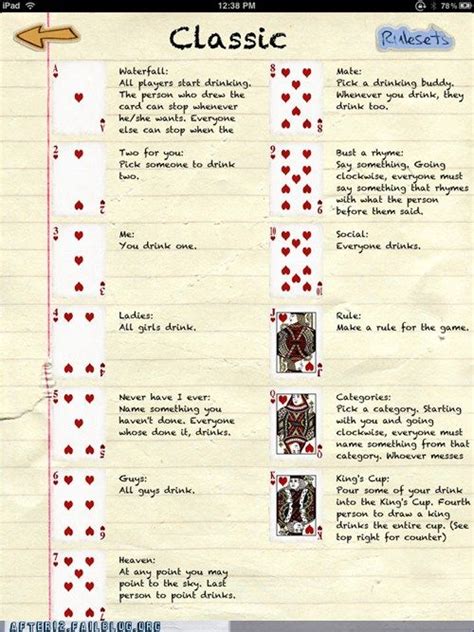 iPad 12:38 PM 78%
Classic
Rulesets
Waterfall:
All players start drinking.
The person who drew the
card can stop whenever
he/she wants. Everyone
else can stop when the
Two for you:
Pick someone to drink
two.
Me:
You drink one.
Ladies:
All girls drink.
Never have I ever:
Name something you
haven't done. Everyone
whose done it, drinks.
Guys:
All guys drink.
Heaven:
At any point you may
point to the sky. Last
person to point drinks.
Mate:
Pick a drinking buddy.
Whenever you drink, they
drink too.
Bust a rhyme:
Say something. Going
clockwise, everyone must
say something that rhymes
with what the person
before them said.
Social:
Everyone drinks.
Rule:
Make a rule for the game.
Categories:
Pick a category. Starting
with you and going
clockwise, everyone must
name something from that
category. Whoever messes
King's Cup:
Pour some of your drink
into the King's Cup. Fourth
person to draw a king
drinks the entire cup. (See
top right for counter)
A
2
3
4
5
6
7
8
9
10
J
Q
K
AFTER12.FAILBLOG.ORG